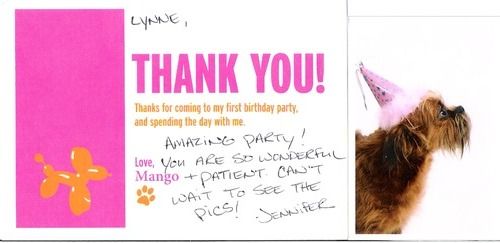 LYNNE,
THANK YOU!
Thanks for coming to my first birthday party,
and spending the day with me.
AMAZING PARTY!
Love, YOU ARE SO WONDERFUL
Mango + PATIENT. CAN'T
WAIT TO SEE THE
PICS! JENNIFER